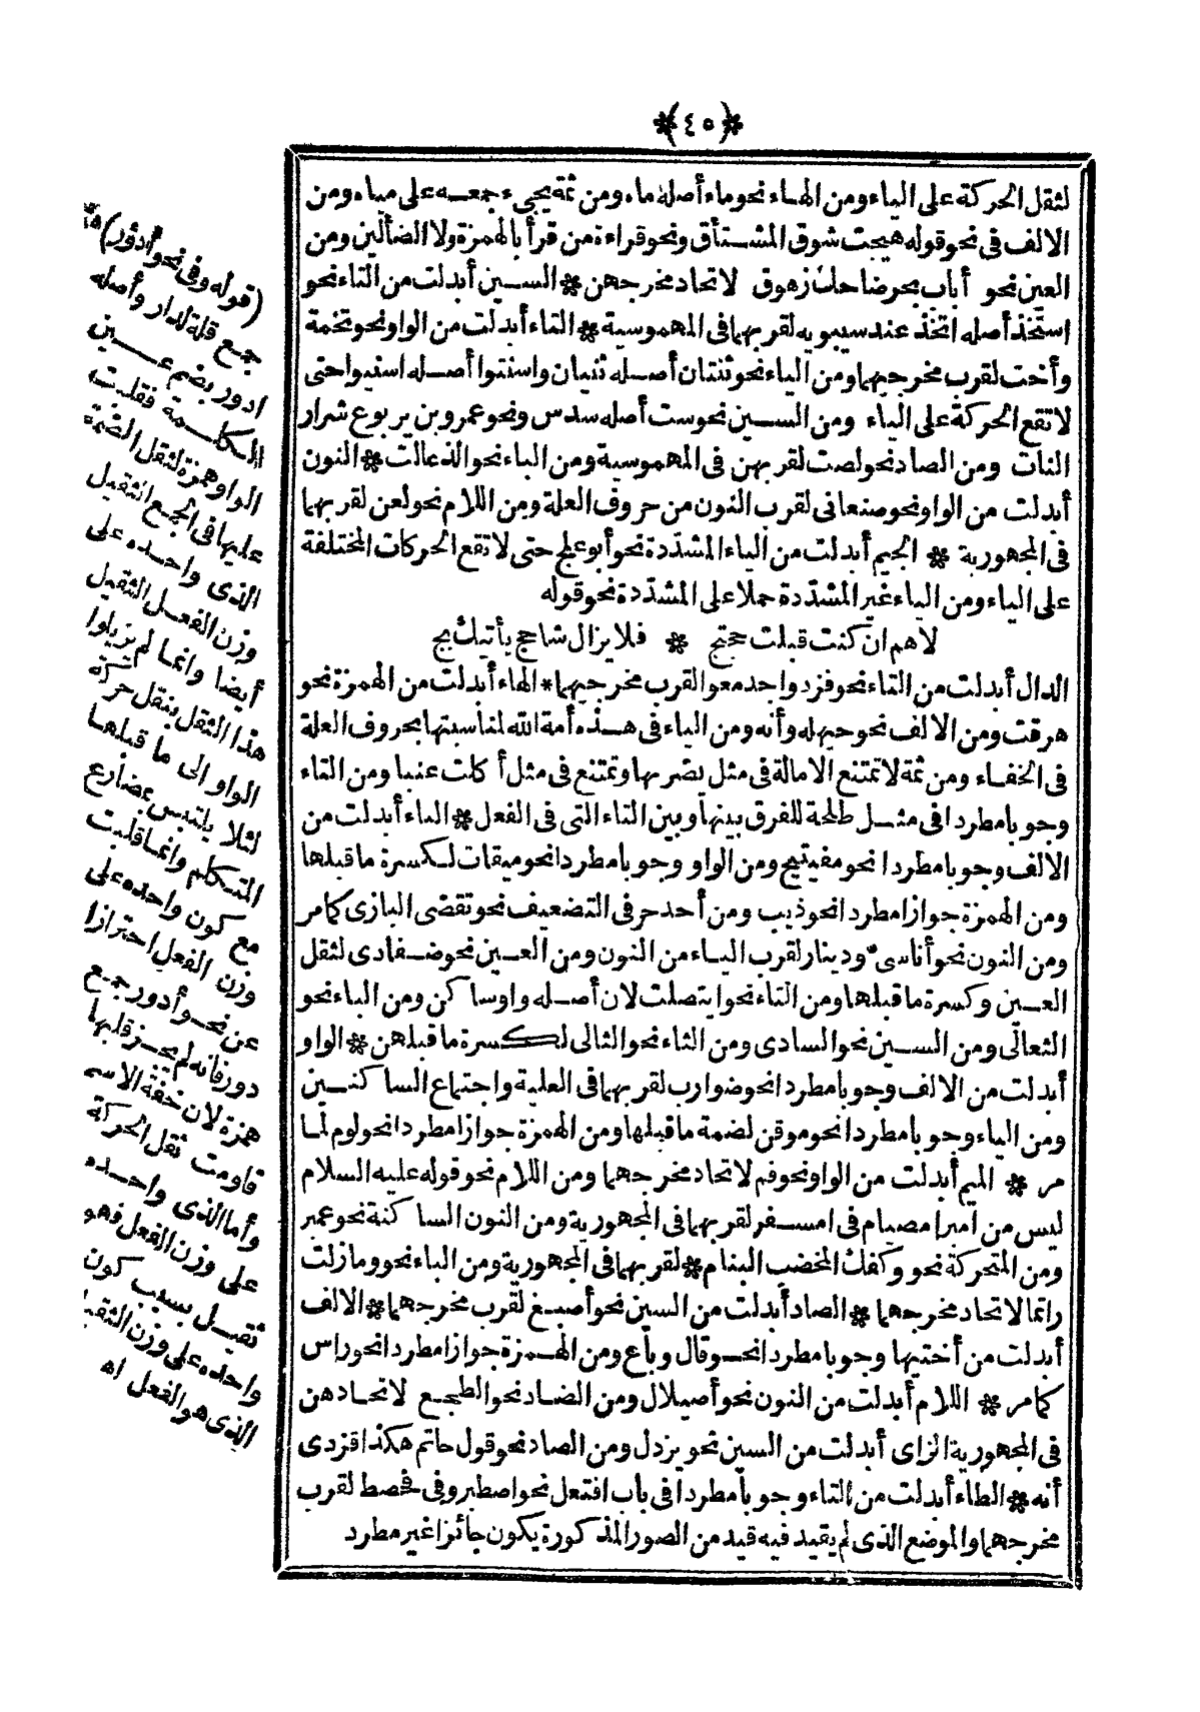 *(٤٥)*
لثقل الحركة على الياء ومن الهاء نحو ماء أصله ماه ومن ثمة يجىء جمعه على مياه ومن
الالف فى نحو قوله هيجت شوق المشتأق ونحو قراءة من قرأ بالهمزة ولا الضألين ومن
العين نحو أباب بحر ضاحك زهوق لاتحاد مخرجهن * السين أبدلت من التاء نحو
استخذ أصله اتخذ عند سيبويه لقربهما فى المهموسية * التاء أبدلت من الواو نحو تخمة
وأخت لقرب مخرجيهما ومن الياء نحو ثنتان أصله ثنيان واسنتوا أصله اسنيوا حتى
لا تقع الحركة على الياء ومن السين نحو ست أصله سدس ونحو عمرو بن يربوع شرار
النات ومن الصاد نحو لصت لقربهن فى المهموسية ومن الباء نحو الذعالت * النون
أبدلت من الواو نحو صنعانى لقرب النون من حروف العلة ومن اللام نحو لعن لقربهما
فى المجهورية * الجيم أبدلت من الياء المشدّدة نحو أبو علج حتى لا تقع الحركات المختلفة
على الياء ومن الياء غير المشدّدة حملا على المشدّدة نحو قوله
لاهم ان كنت قبلت حجتج * فلا يزال شاحج يأتيك بج
الدال أبدلت من التاء نحو فزد واجدمعوا لقرب مخرجيهما * الهاء أبدلت من الهمزة نحو
هرقت ومن الالف نحو حيهله وأنه ومن الياء فى هذه أمة الله لمناسبتها بحروف العلة
فى الخفاء ومن ثمة لا تمتنع الامالة فى مثل يضربها وتمتنع فى مثل أكلت عنبا ومن التاء
وجوبا مطردا فى مثل طلحة للفرق بينها وبين التاء التى فى الفعل * الياء أبدلت من
الالف وجوبا مطردا نحو مفيتيح ومن الواو وجوبا مطردا نحو ميقات لكسرة ما قبلها
ومن الهمزة جوازا مطردا نحو ذيب ومن أحد حرفى التضعيف نحو تقضى البازى كما مر
ومن النون نحو أناسىّ ودينار لقرب الياء من النون ومن العين نحو ضفادى لثقل
العين وكسرة ما قبلها ومن التاء نحو ايتصلت لان أصله واو ساكن ومن الباء نحو
الثعالى ومن السين نحو السادى ومن الثاء نحو الثالى لكسرة ما قبلهن * الواو
أبدلت من الالف وجوبا مطردا نحو ضوارب لقربهما فى العلية واجتماع الساكنين
ومن الياء وجوبا مطردا نحو موقن لضمة ما قبلها ومن الهمزة جوازا مطردا نحو لوم لما
مر * الميم أبدلت من الواو نحو فم لاتحاد مخرجهما ومن اللام نحو قوله عليه السلام
ليس من امبر امصيام فى امسفر لقربهما فى المجهورية ومن النون الساكنة نحو عمبر
ومن المتحركة نحو وكفك المخضب البنام * لقربهما فى المجهورية ومن الباء نحو ومازلت
راتما لاتحاد مخرجهما * الصاد أبدلت من السين نحو أصبغ لقرب مخرجهما * الالف
أبدلت من أختيها وجوبا مطردا نحو قال وباع ومن الهمزة جوازا مطردا نحو راس
كما مر * اللام أبدلت من النون نحو أصيلال ومن الضاد نحو الطجع لاتحادهن
فى المجهورية الزاى أبدلت من السين نحو يزدل ومن الصاد نحو قول حاتم هكذا فزدى
أنه * الطاء أبدلت من التاء وجوبا مطردا فى باب افتعل نحو اصطبر وفى فحصط لقرب
مخرجهما والموضع الذى لم يقيد فيه قيد من الصور المذكورة يكون جائزا غير مطرد
(قوله وفى نحو أدؤر)
جمع قلة لدار وأصله
ادور بضم عين
الكلمة فقلبت
الواو همزة لثقل الضمة
عليها فى الجمع الثقيل
الذى واحده على
وزن الفعل الثقيل
أيضا وانما لم يزيلوا
هذا الثقل بنقل حركة
الواو الى ما قبلها
لئلا يلتبس بمضارع
المتكلم وانما قلبت
مع كون واحده على
وزن الفعل احترازا
عن نحو أدور جمع
دور فانه لم يجز قلبها
همزة لان خفة الاسم
قاومت ثقل الحركة
وأما الذى واحده
على وزن الفعل فهو
ثقيل بسبب كون
واحده على وزن الثقيل
الذى هو الفعل اه